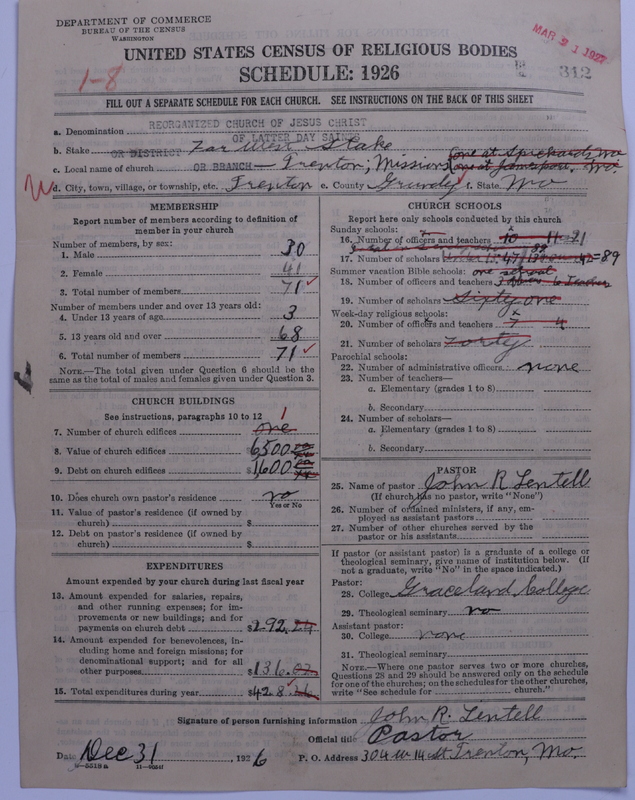 DEPARTMENT OF COMMERCE
BUREAU OF THE CENSUS
WASHINGTON
MAR 31 1927
UNITED STATES CENSUS OF RELIGIOUS BODIES
SCHEDULE: 1926
1-8
312
FILL OUT A SEPARATE SCHEDULE FOR EACH CHURCH. SEE INSTRUCTIONS ON THE BACK OF THIS SHEET
a. Denomination REORGANIZED CHURCH OF JESUS CHRIST
OF LATTER DAY SAINTS
b. Stake OR DISTRICT Far West Stake
c. Local name of church OR BRANCH - Trenton; Missions (one at Spickards, Mo
one at Jamespor. Mo.
d. City, town, village, or township, etc. Trenton e. County Grundy f. State Mo
MEMBERSHIP
Report number of members according to definition of
member in your church
Number of members, by sex:
1. Male 30
2. Female 41
3. Total number of members 71
Number of members under and over 13 years old:
4. Under 13 years of age 3
5. 13 years old and over 68
6. Total number of members 71
NOTE.—The total given under Question 6 should be
same as the total of males and females given under Question 3.
CHURCH BUILDINGS
See instructions, paragraphs 10 to 12
1
7. Number of church edifices one
8. Value of church edifices $6500
9. Debt on church edifices $1,600
10. Does church own pastor's residence no
Yes or No
11. Value of pastor's residence (if owned by
church) $
12. Debt on pastor's residence (if owned by
church) $
EXPENDITURES
Amount expended by your church during last fiscal year
13. Amount expended for salaries, repairs,
and other running expenses; for im-
provements or new buildings; and for
payments on church debt $292.
14. Amount expended for benevolences, in-
cluding home and foreign missions; for
denominational support; and for all
other purposes $136.
15. Total expenditures during year $428.
CHURCH SCHOOLS
Report here only schools conducted by this church
Sunday schools:
16. Number of officers and teachers 10 11 = 21
17. Number of scholars 47 42 = 89
Summer vacation Bible schools: one school
18. Number of officers and teachers 6 Teachers
19. Number of scholars Sixty one
Week-day religious schools:
20. Number of officers and teachers 7 4
21. Number of scholars Forty
Parochial schools:
22. Number of administrative officers none
23. Number of teachers—
a. Elementary (grades 1 to 8)
b. Secondary
24. Number of scholars—
a. Elementary (grades 1 to 8)
b. Secondary
PASTOR
25. Name of pastor John R Lentell
(If church has no pastor, write "None")
26. Number of ordained ministers, if any, em-
ployed as assistant pastors
27. Number of other churches served by the
pastor or his assistants
If pastor (or assistant pastor) is a graduate of a college or
theological seminary, give name of institution below. (If
not a graduate, write "No" in the space indicated.)
Pastor:
28. College Graceland College
29. Theological seminary no
Assistant pastor:
30. College none
31. Theological seminary
NOTE.—Where one pastor serves two or more churches,
Questions 28 and 29 should be answered only on the schedule
for one of the churches; on the schedules for the other churches,
write "See schedule for church."
Signature of person furnishing information John R. Lentell
Official title Pastor
Date Dec 31, 1926 P. O. Address 304 W 14 st Trenton, Mo.